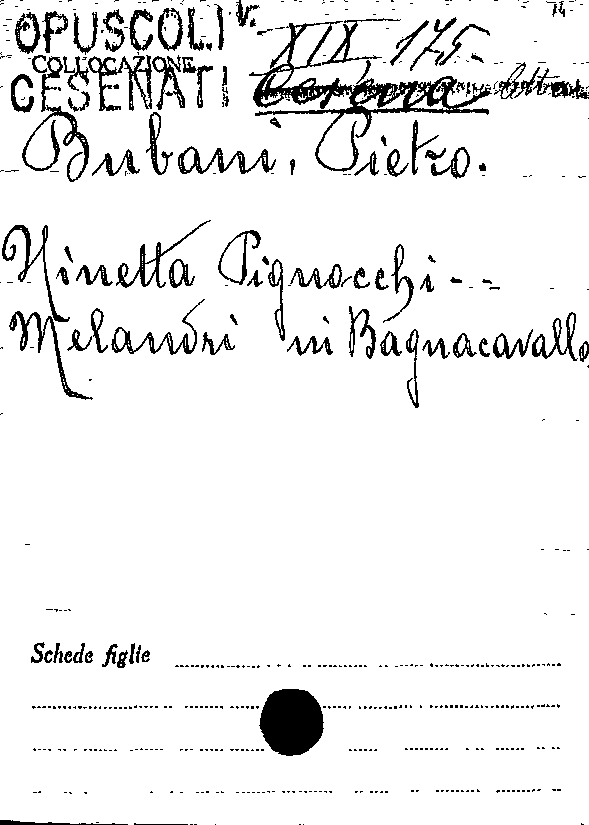 OPUSCOLI V. XIX, 175.
COLLOCAZIONE
CESENATI Cesena
Bubani, Pietro.
Ninetta Pignocchi--
Melandri in Bagnacavallo
Schede figlie